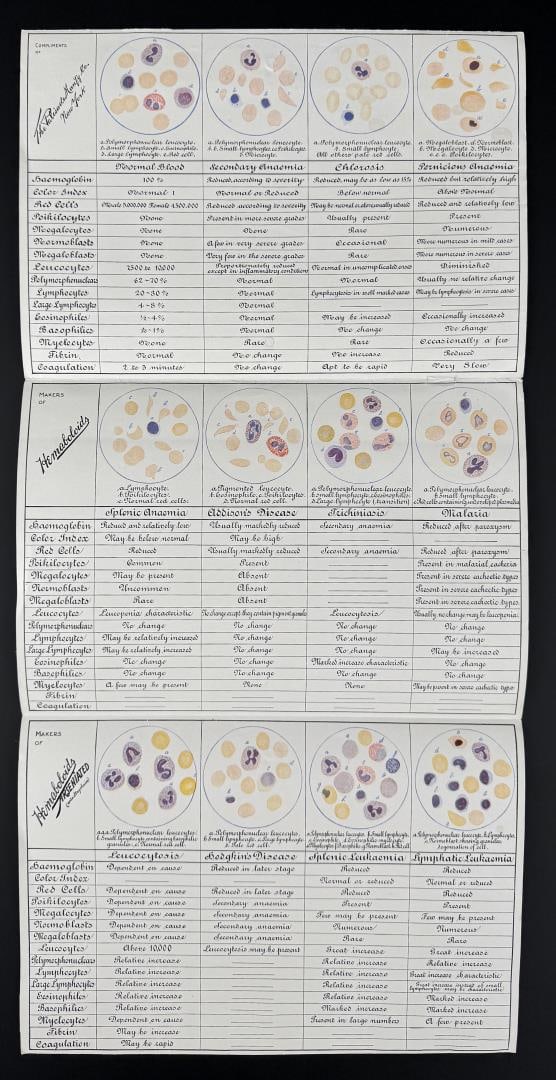 COMPLIMENTS
OF
The Palisade Manf'g Co.
New York
a. Polymorphonuclear leucocyte.
b. Small lymphocyte. c. Eosinophile.
d. Large lymphocyte. e. Red cell.
a. Polymorphonuclear leucocyte.
b. b. Small lymphocytes. c. Poikilocyte
a. Polymorphonuclear leucocyte.
b. Small lymphocyte.
All others pale red cells.
a. Megaloblast. d. Normoblast.
b. Megalocyte. D. Microcyte.
e. e. e. Poikilocytes.
Normal Blood Secondary Anaemia Chlorosis Pernicious Anaemia
Haemoglobin 100% Reduced, according to severity Reduced, may be as low as 15% Reduced but relatively high
Color Index Normal 1 Normal or Reduced Below normal Above Normal
Red Cells Male 5.000.000 Female 4.500.000 Reduced according to severity May be normal or Reduced and relatively low
Poikilocytes None Present in more severe grades Usually present Present
Megalocytes None None Rare Numerous
Normoblasts None A few in very severe grades Occasional More numerous in mild cases
Megaloblasts None Very few in the severe grades Rare More numerous in severe cases
Leucocytes 7500 to 10000 Proportionately reduced except in inflammatory conditions Normal in uncomplicated cases Diminished
Polymorphonuclears 62-70% Normal Normal Usually no relative change
Lymphocytes 20-30% Normal Lymphocytosis in well marked cases May be lymphocytosis in severe cases
Large Lymphocytes 4-8% Normal Normal
Eosinophiles ½-4% Normal May be increased Occasionally increased
Basophiles Normal No change No change
Myelocytes None Rare Rare Occasionally a few
Fibrin Normal No change No increase Reduced
Coagulation 2 to 3 minutes No change Apt to be rapid Very Slow
MAKERS
OF
Hemaboloids
a. Lymphocyte.
b. Poikilocytes.
c. Normal red cells.
a. Pigmented leucocyte.
b. Eosinophile. c. Poikilocytes.
D. Normal red cell.
a. Polymorphonuclear leucocytes.
b. Small lymphocytes. c. Eosinophiles.
d. Large Lymphocyte (transition)
a. Polymorphonuclear leucocyte.
b. Small lymphocyte.
c. Red cells containing undeveloped plasmodia
Splenic Anaemia Addison's Disease Trichiniasis Malaria
Haemoglobin Reduced and relatively low Usually markedly reduced Secondary anaemia Reduced after paroxysm
Color Index May be below normal May be high
Red Cells Reduced Usually markedly reduced Secondary anaemia Reduced after paroxysm
Poikilocytes Common Present Present in malarial cachexia
Megalocytes May be present Absent Present in severe cachectic types
Normoblasts Uncommon Absent Present in severe cachectic types
Megaloblasts Rare Absent Present in severe cachectic types
Leucocytes Leucopenia characteristic No change except they contain pigment granules Leucocytosis Usually no change may be leucopenia
Polymorphonuclears No change No change No change No change
Lymphocytes May be relatively increased No change No change No change
Large Lymphocytes May be relatively increased No change No change May be increased
Eosinophiles No change No change Marked increase characteristic No change
Basophiles No change No change No change No change
Myelocytes A few may be present None None May be present in severe cachectic types
Fibrin
Coagulation
MAKERS
OF
Hemaboloids
ARSENIATED
a.a.a. Polymorphonuclear leucocytes.
b. Small lymphocyte containing basophilic
granules. c. Normal red cell.
a. Polymorphonuclear leucocyte.
b. Small lymphocyte. c. Large lymphocyte
D. Pale red cell.
a. Polymorphonuclear leucocyte. b. Small lymphocyte.
c. Eosinophile. d. Eosinophilic myelocyte.
a. Polymorphonuclear leucocyte. b. Lymphocyte.
c. Normoblast showing granular
degeneration of cell.
Leucocytosis Hodgkin's Disease Splenic Leukaemia Lymphatic Leukaemia
Haemoglobin Dependent on cause Reduced in later stage Reduced Reduced
Color Index Normal or reduced Normal or reduced
Red Cells Dependent on cause Reduced in later stage Reduced Reduced
Poikilocytes Dependent on cause Secondary anaemia Present Present
Megalocytes Dependent on cause Secondary anaemia Few may be present Few may be present
Normoblasts Dependent on cause Secondary anaemia Numerous Numerous
Megaloblasts Dependent on cause Secondary anaemia Rare Rare
Leucocytes Above 10,000 Leucocytosis may be present Great increase Great increase
Polymorphonuclears Relative increase Relative increase Relative increase
Lymphocytes Relative increase Relative increase Great increase characteristic
Large Lymphocytes Relative increase Relative increase Great increase instead of small lymphocytes may be characteristic
Eosinophiles Relative increase Relative increase Marked increase
Basophiles Relative increase Marked increase Marked increase
Myelocytes Dependent on cause Present in large number A few present
Fibrin May be increase
Coagulation May be rapid